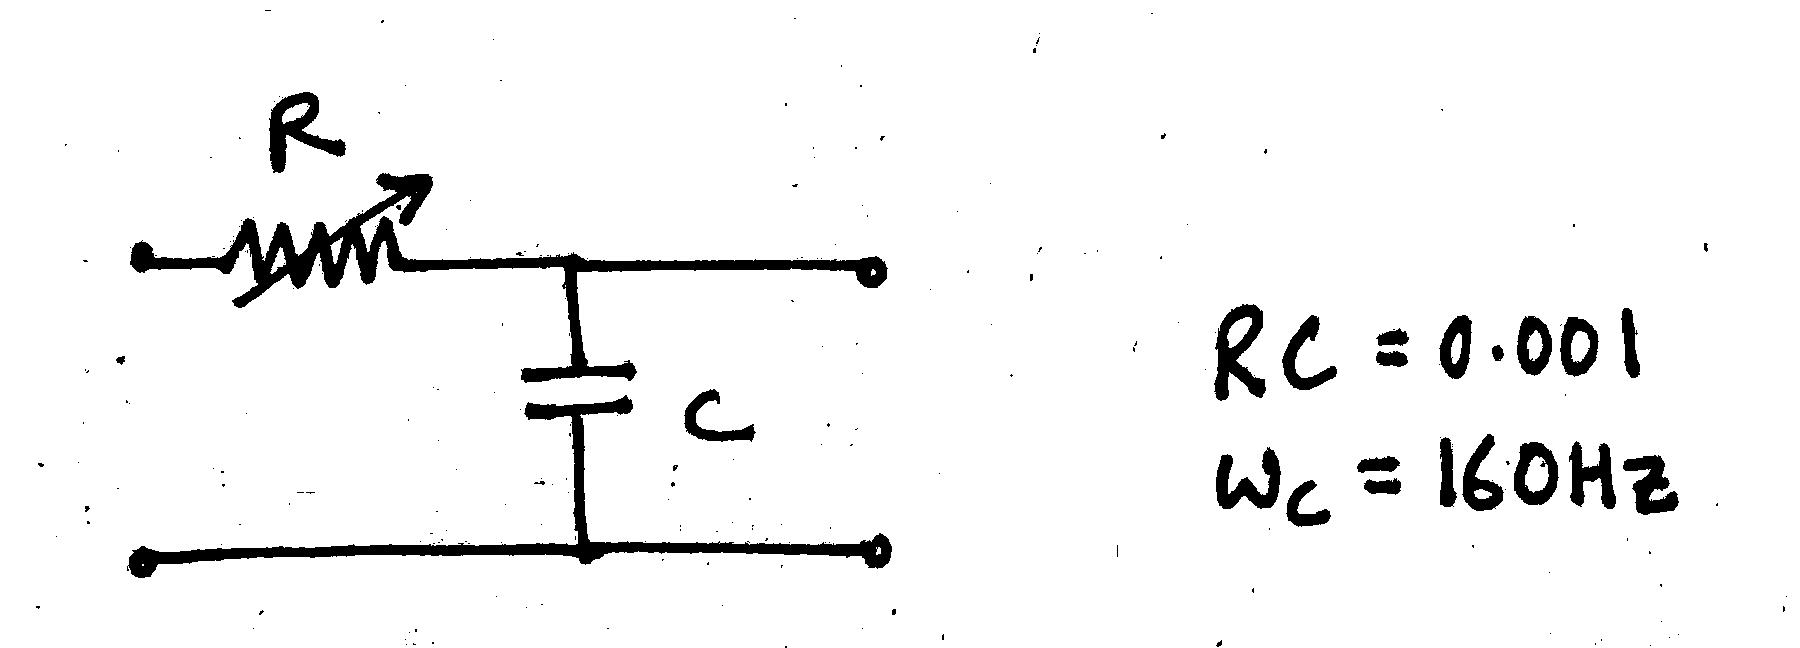 R
C
RC = 0.001
ωc = 160Hz